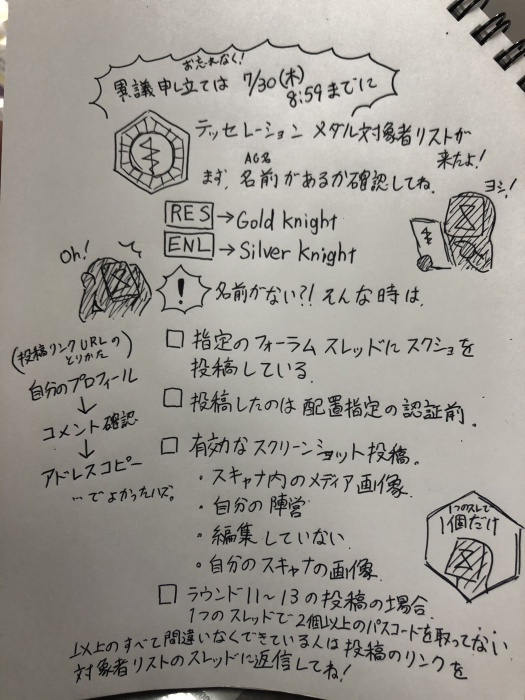 お忘れなく!
異議申し立ては 7/30(木)
8:59までに
テッセレーション メダル対象者リストが
来たよ!
AG名
まず、名前があるか確認してね。
ヨシ!
RES→Gold knight
ENL→Silver knight
Oh!
! 名前がない?! そんな時は、
(投稿リンクURLの
とりかた)
自分のプロフィール
↓
コメント確認
↓
アドレスコピー
…でよかったハズ。
□ 指定のフォーラムスレッドにスクショを
投稿している。
□ 投稿したのは配置指定の認証前。
□ 有効なスクリーンショット投稿。
・スキャナ内のメディア画像
・自分の陣営
・編集していない
・自分のスキャナの画像
1つのスレで
1個だけ
□ ラウンド11~13の投稿の場合
1つのスレッドで2個以上のパスコードを取ってない
以上のすべて間違いなくできている人は投稿のリンクを
対象者リストのスレッドに返信してね!